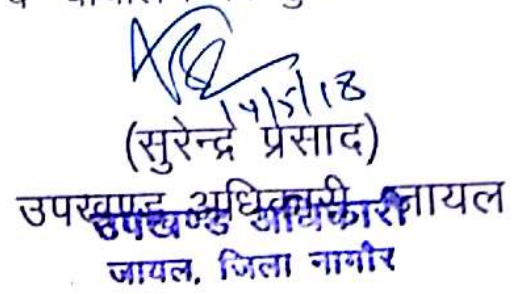 14/5/18
(सुरेन्द्र प्रसाद)
उपखण्ड अधिकारी जायल
उपखण्ड अधिकारी
जायल, जिला नागौर